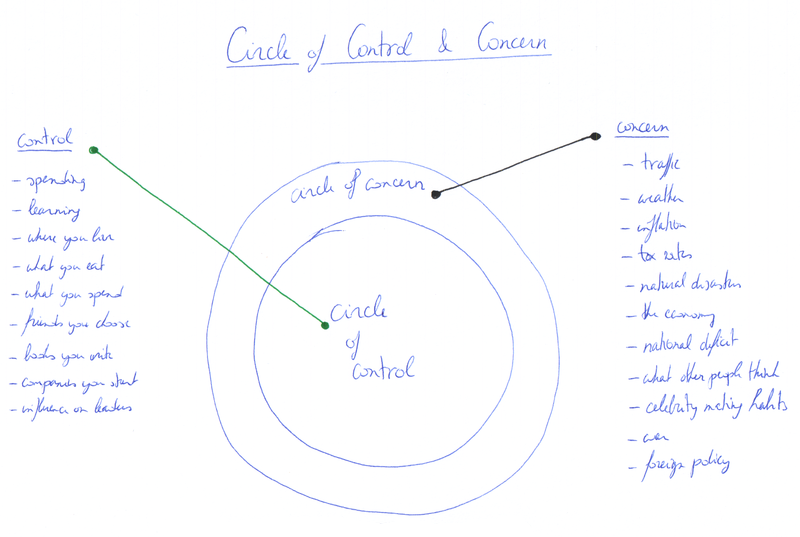 Circle of Control & Concern
control
- spending
- learning
- where you live
- what you eat
- what you spend
- friends you choose
- books you write
- companies you start
- influence on leaders
circle of concern
circle
of
control
concern
- traffic
- weather
- inflation
- tax rates
- natural disasters
- the economy
- national deficit
- what other people think
- celebrity mating habits
- war
- foreign policy